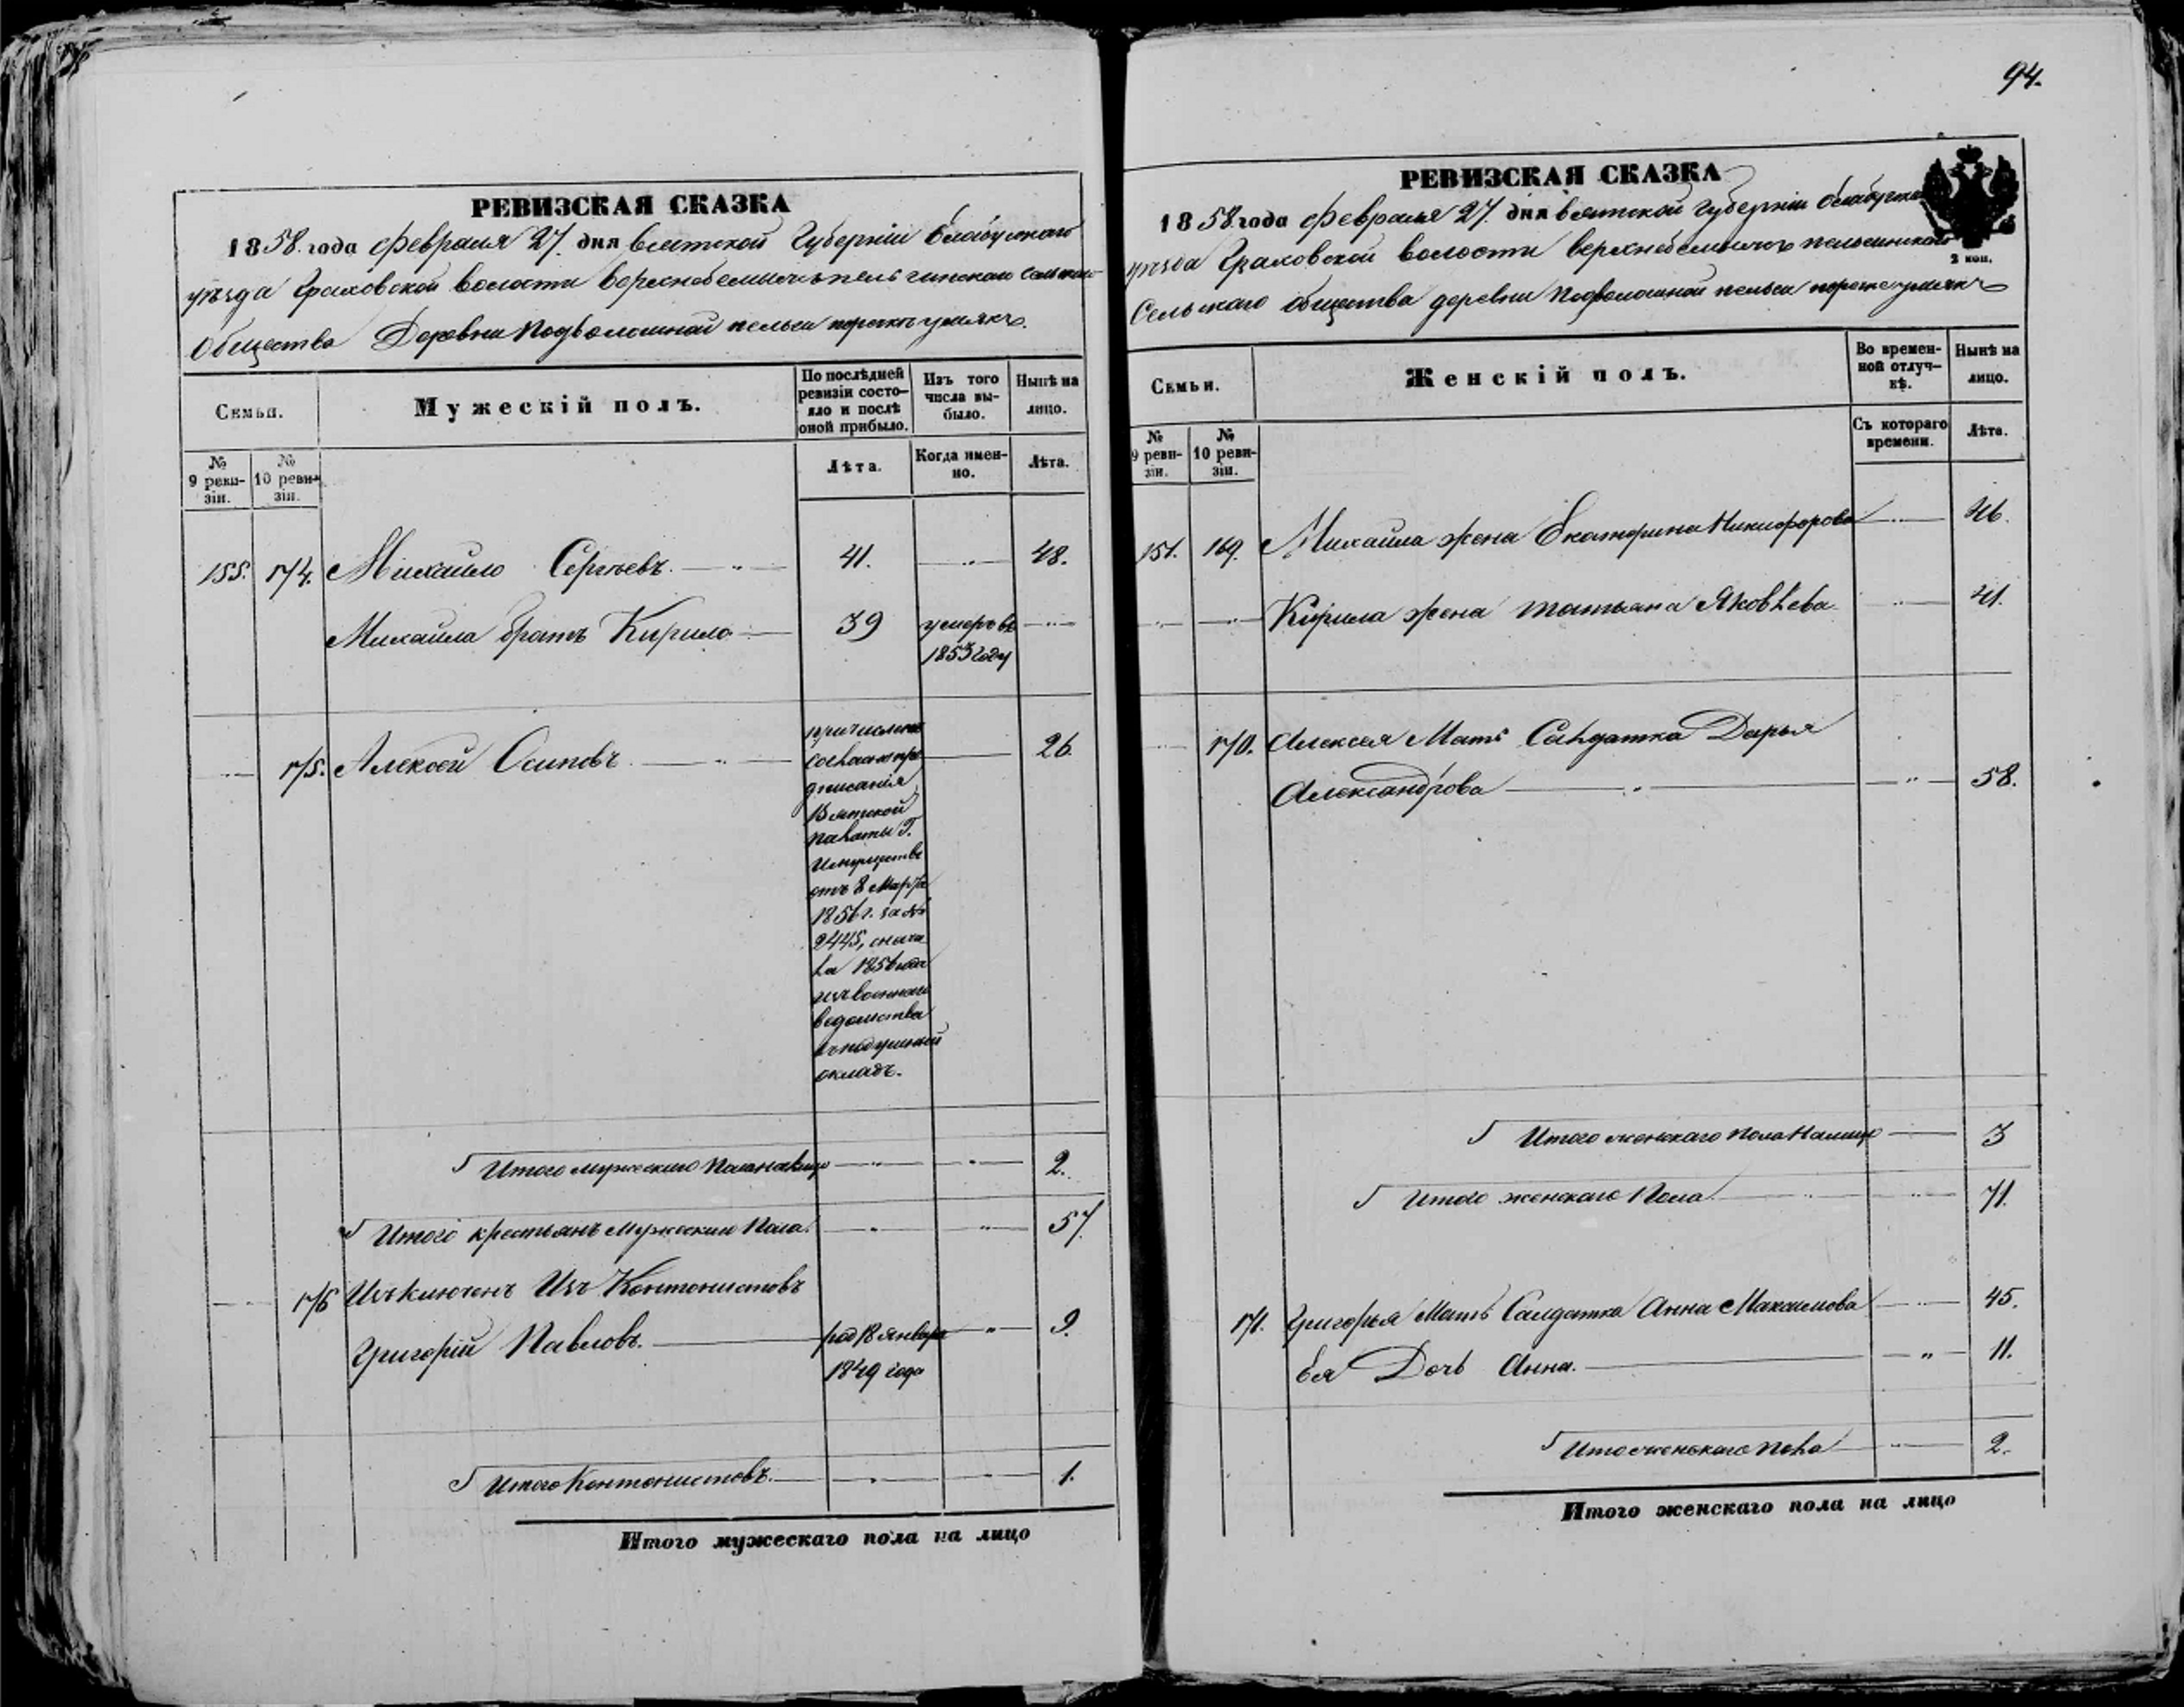 РЕВИЗСКАЯ СКАЗКА
1858 года февраля 27 дня Вятской Губерніи Елабужскаго
уѣзда Граховской волости
Общества Деревни Подволошной пельги
Семьи.
Мужескій полъ.
По послѣдней ревизіи состояло и послѣ оной прибыло.
Изъ того числа выбыло.
Нынѣ на лицо.
№ 9 ревизіи.
№ 10 ревизіи.
Лѣта.
Когда именно.
Лѣта.
155. 174. Михайло Сергѣевъ. 41. 48.
Михаила братъ Кирило 39 умеръ въ
1853 году
175. Алексѣй Осиповъ 26.
причисленъ
дписанія
Вятской
палаты Г.
Имуществъ
отъ 8 Марта
1856 г. за №
2445, съ нача
ла 1856 года
изъ военнаго
ведомства
въ подушный
окладъ.
Итого мужескаго пола на лицо 2.
Итого крестьянъ мужескаго пола 57.
176 Изъключенъ Изъ Кантонистовъ
Григорій Павловъ. род 18 января 9.
1849 года
Итого Кантонистовъ. 1.
Итого мужескаго пола на лицо
94.
РЕВИЗСКАЯ СКАЗКА
1858 года февраля 27 дня Вятской Губерніи
уѣзда Граховской волости
2 коп.
Сельскаго общества деревни Подволошной пельги
Семьи.
Женскій полъ.
Во временной отлучкѣ.
Нынѣ на лицо.
№ 9 ревизіи.
№ 10 ревизіи.
Съ котораго времени.
Лѣта.
151. 169. Михаила жена Екатерина Никифорова 46.
Кирила жена Татьяна Яковлева 41.
170. Алексея Мать Салдатка Дарья
Александрова 58.
Итого женскаго пола на лицо 3
Итого женскаго пола 71.
171. Григорья Мать Салдатка Анна Максимова 45.
Ея Дочь Анна. 11.
Итого женскаго пола 2.
Итого женскаго пола на лицо